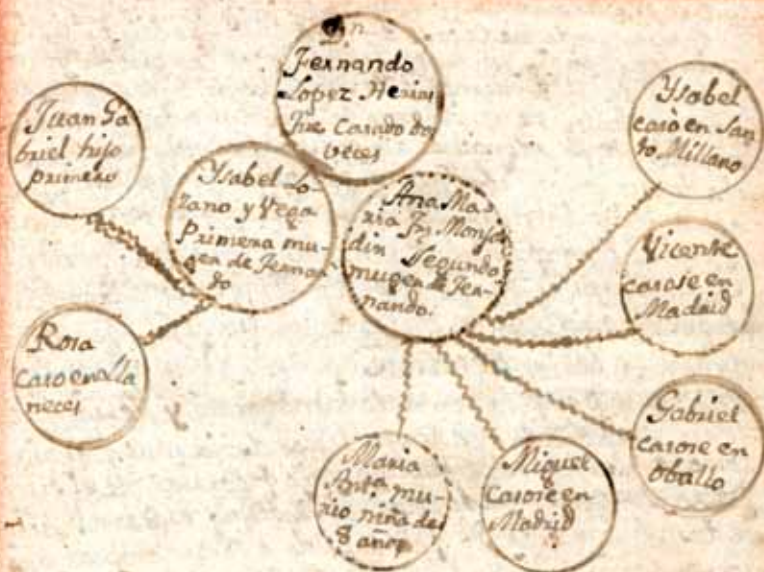 Dn
Fernando
Lopez Herias
fue Casado dos
veces
Juan Ga
briel hijo
primero
Ysabel Lo-
zano y Vega
Primera mu-
ger de Fernan
do
Ana Ma-
ria Fz Monja
din Segundo
muger de Fer-
nando.
Ysabel
casò en San
to Millano
Vicente
casose en
Madrid
Rosa
caso en Lla
neces
Gabriel
casose en
Oballo
Maria
mu-
rio niña de
8 años
Miguel
casose en
Madrid